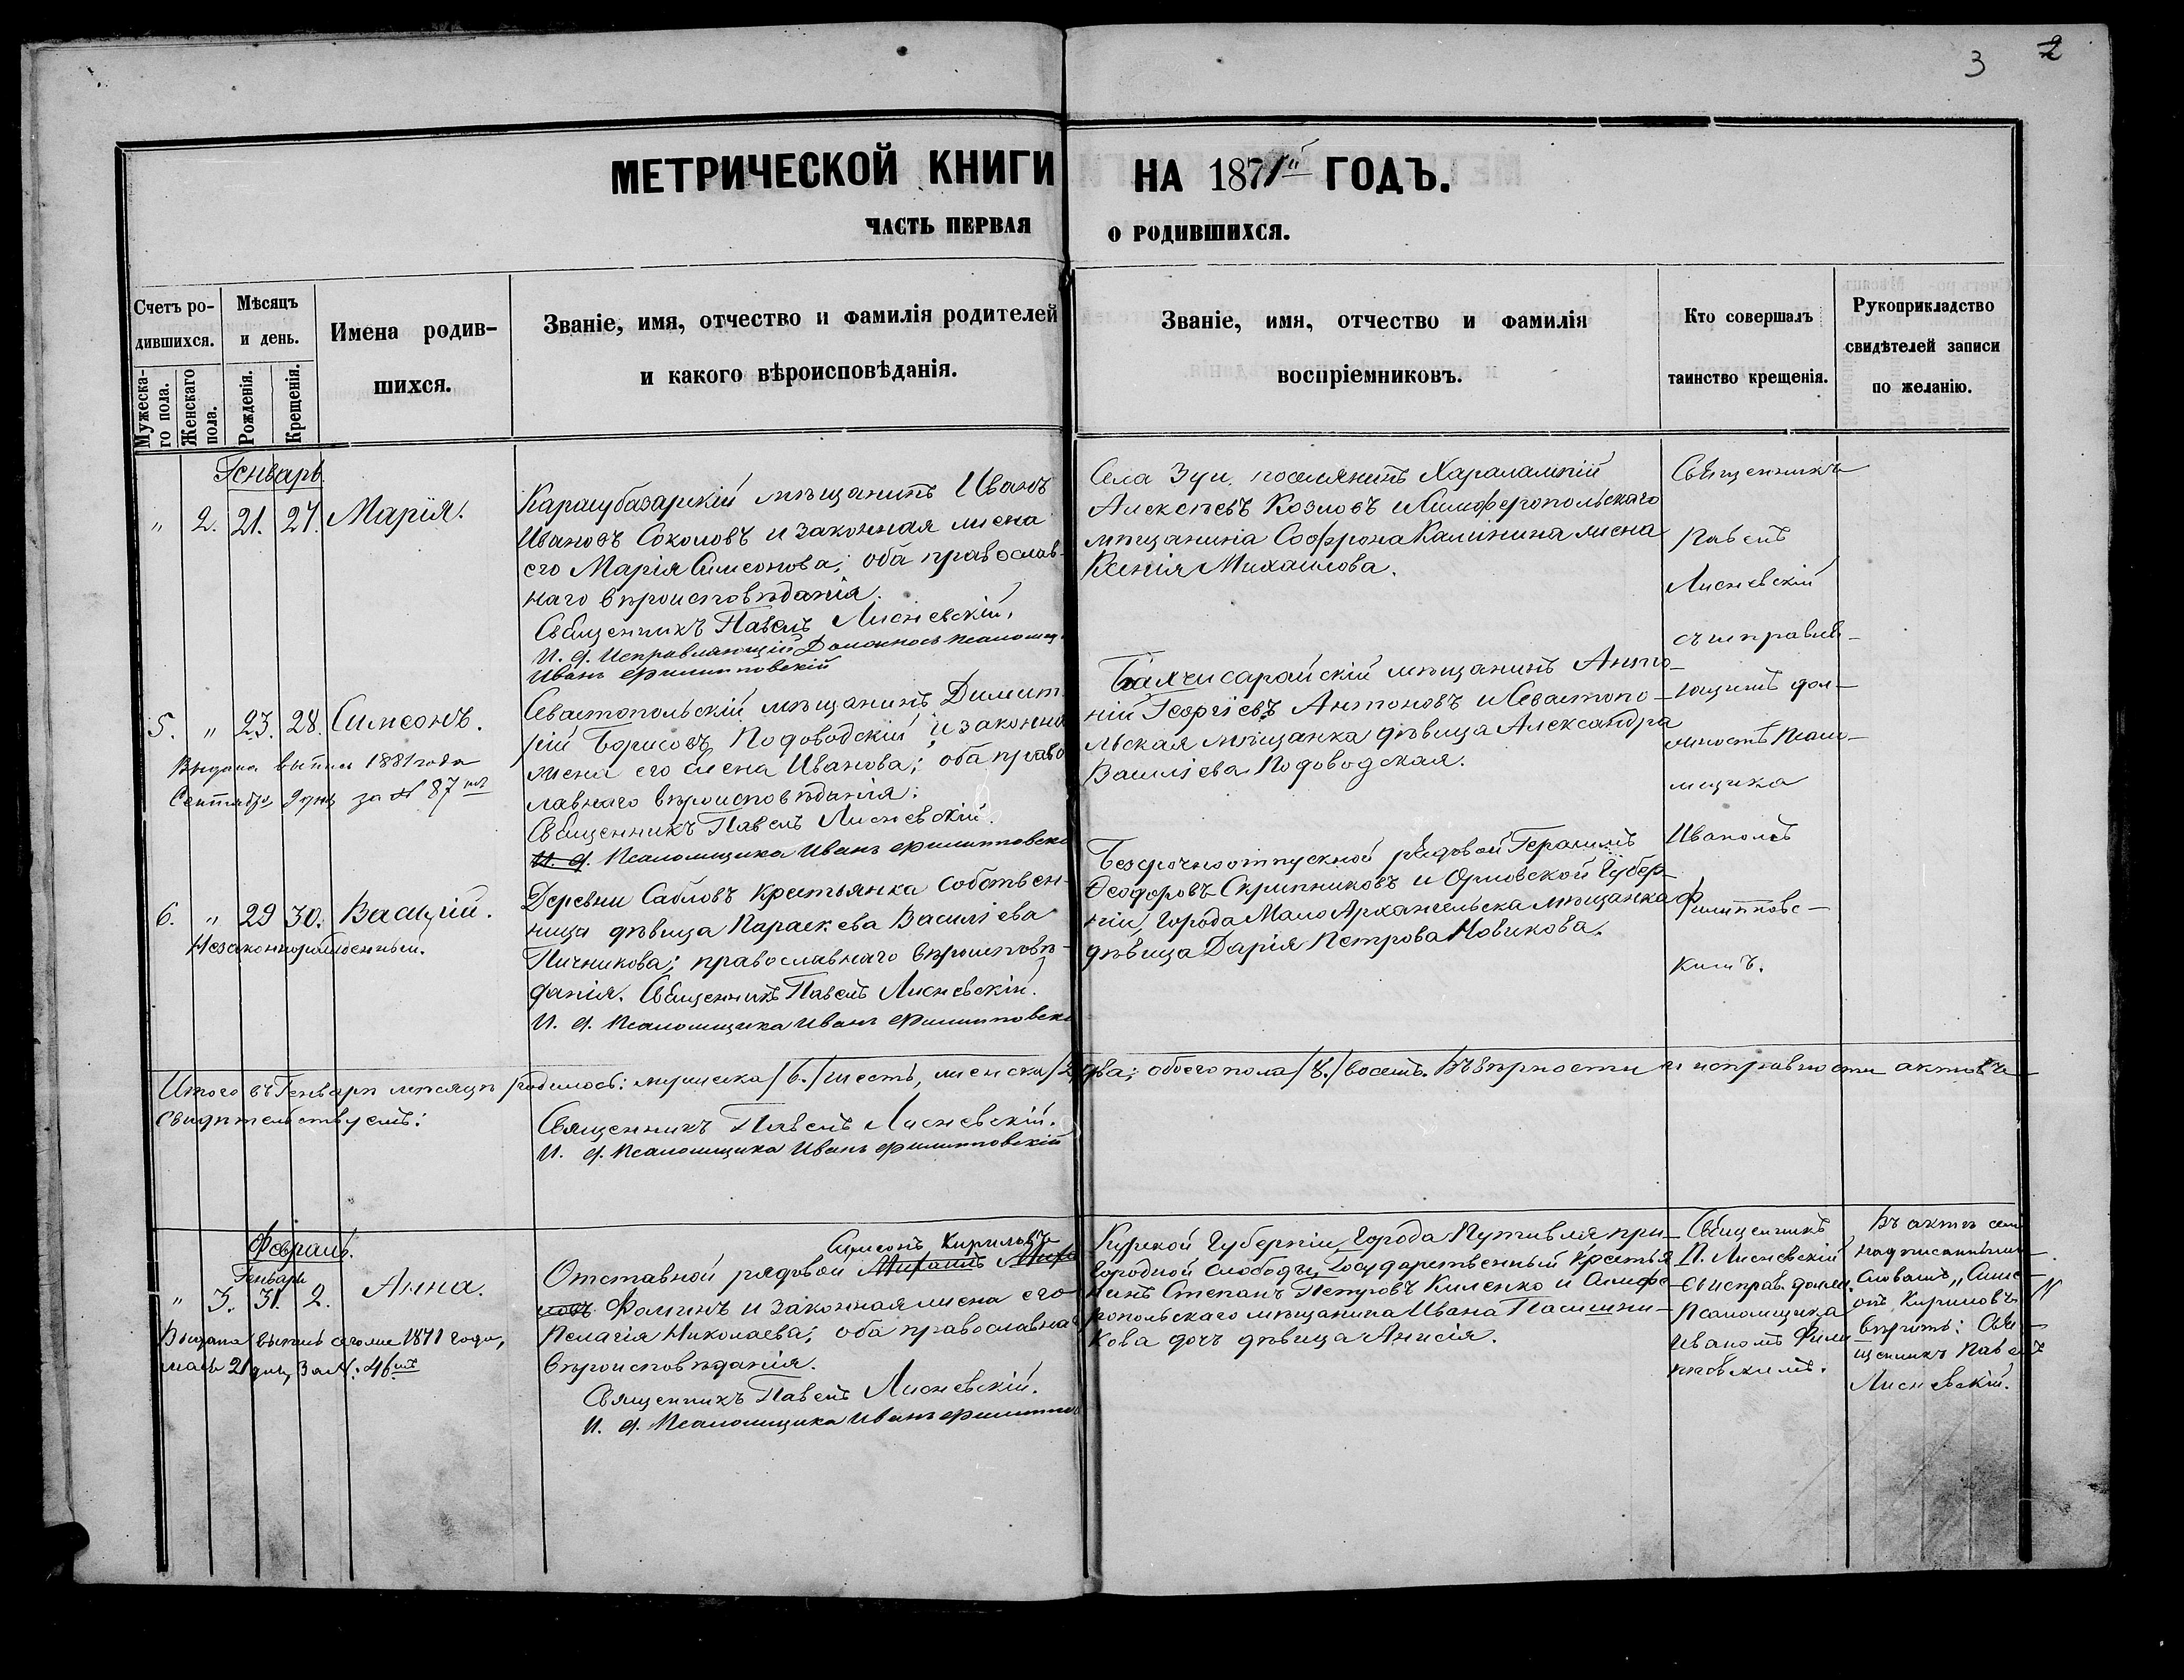 3 2
МЕТРИЧЕСКОЙ КНИГИ НА 1871й ГОДЪ.
ЧАСТЬ ПЕРВАЯ О РОДИВШИХСЯ.
Счетъ ро-
дившихся.
Мужеска-
го пола.
Женскаго
пола.
Мѣсяцъ
и день.
Рожденія.
Крещенія.
Имена родив-
шихся.
Званіе, имя, отчество и фамилія родителей
и какого вѣроисповѣданія.
Званіе, имя, отчество и фамилія
воспріемниковъ.
Кто совершалъ
таинство крещенія.
Рукоприкладство
свидѣтелей записи
по желанію.
Генварь
" 2. 21. 27. Марія.
Карашубазарскій мѣщанинъ Иванъ
Ивановъ Соколовъ и законная жена
его Марія Симеонова; оба православ-
наго вѣроисповѣданія.
Священникъ Павелъ Лисневскій.
И. д. Исправляющій Должность псаломщ.
Иванъ Филипповскій
Села Зуи, поселянинъ Харалампій
Алексѣевъ Козловъ и Симферопольскаго
мѣщанина Софрона Калинина жена
Ксенія Михаилова.
Священникъ
Павелъ
Лисневскій
съ исправля-
ющимъ дол-
жность псало-
мщика
Иваномъ
Филипповс-
кимъ.
5. " 23. 28. Симеонъ.
Выдана выпись 1881 года
Сентября 9 дня за № 87мъ
Севастопольскій мѣщанинъ Димит-
рій Борисовъ Подоводскій и законна
жена его Елена Иванова; оба право
лавнаго вѣроисповѣданія:
Священникъ Павелъ Лисневскій.
И. д. Псаломщика Иванъ Филипповскі
Бахчисарайскій мѣщанинъ Анто-
ній Георгіевъ Антоновъ и Севастопо-
льская мѣщанка дѣвица Александра
Василіева Подоводская.
6. " 29 30. Василій.
Незаконнорожденный.
Деревни Сабловъ Крестьянка Собствен-
ница дѣвица Параскева Василіева
Пичникова; православнаго вѣроисповѣ-
данія. Священникъ Павелъ Лисневскій.
И. д. Псаломщика Иванъ Филипповскі
Безсрочноотпускной рядовой Герасимъ
Ѳеодоровъ Скрипниковъ и Орловской Губер-
ніи, города Мало Архангельска мѣщанка
дѣвица Дарія Петрова Новикова.
Итого въ Генварѣ мѣсяцѣ родилось: мужеска /6./ шесть, женска /2./ два; обоего пола /8./ восемь. Въ вѣрности и исправности актовъ
свидѣтельствуемъ:
Священникъ Павелъ Лисневскій.
И. д. Псаломщика Иванъ Филипповскій
Февраль.
Генварь
" 3. 31. 2. Анна.
Выдана выпись о семъ 1871 года,
мая 21 дня, за №: 46мъ
Симеонъ Кириловъ
Отставной рядовой Михаилъ Миха
ловъ Фоминъ и законная жена его
Пелагія Николаева; оба православна
вѣроисповѣданія.
Священникъ Павелъ Лисневскій.
И. д. Псаломщика Иванъ Филиппов
Курской Губерніи, Города Путивля при-
городной слободы, Государственный Крестья
нинъ Степанъ Петровъ Киленко и Симфе-
ропольскаго мѣщанина Ивана Пасишни-
кова дочь дѣвица Анисія.
Священникъ
П. Лисневскій
съ исправ. должн.
Псаломщика
Иваномъ Фили-
пповскимъ.
Въ актѣ сем
надписаннымъ
словамъ „Симе-
онъ Кириловъ"
вѣрить: Свя-
щенникъ Павелъ
Лисневскій.